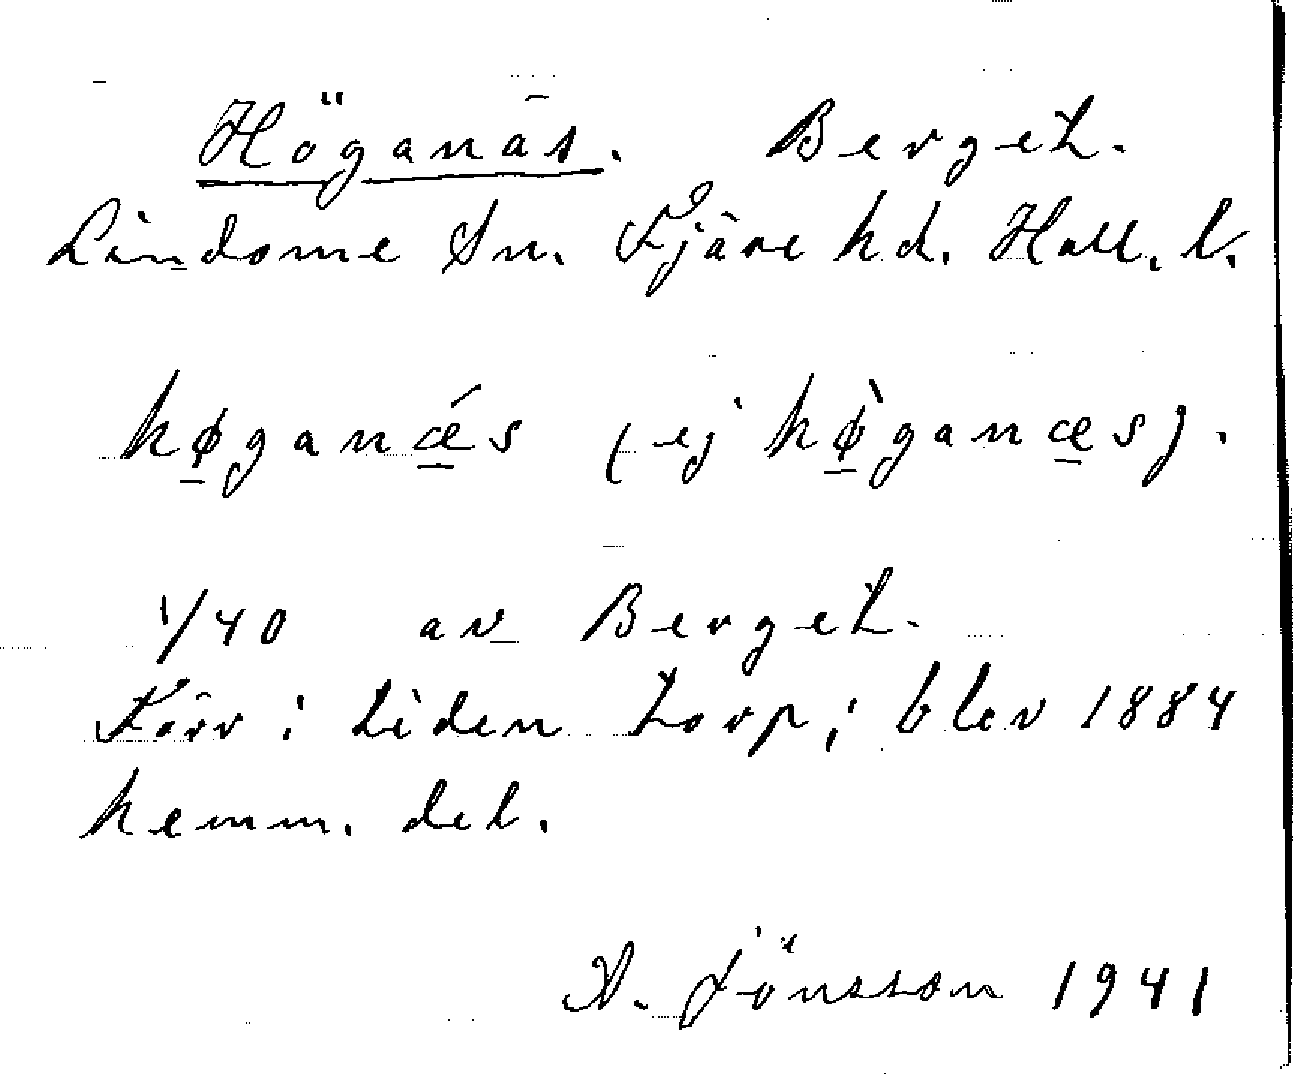 Höganäs. Berget.
Lindome Sn. Fjäre hd. Hall. l.
høganǽs (ej hø̀ganæs).
1/40 av Berget.
Förr: liden torp; blev 1884
hemm. del.
A. Jönsson 1941